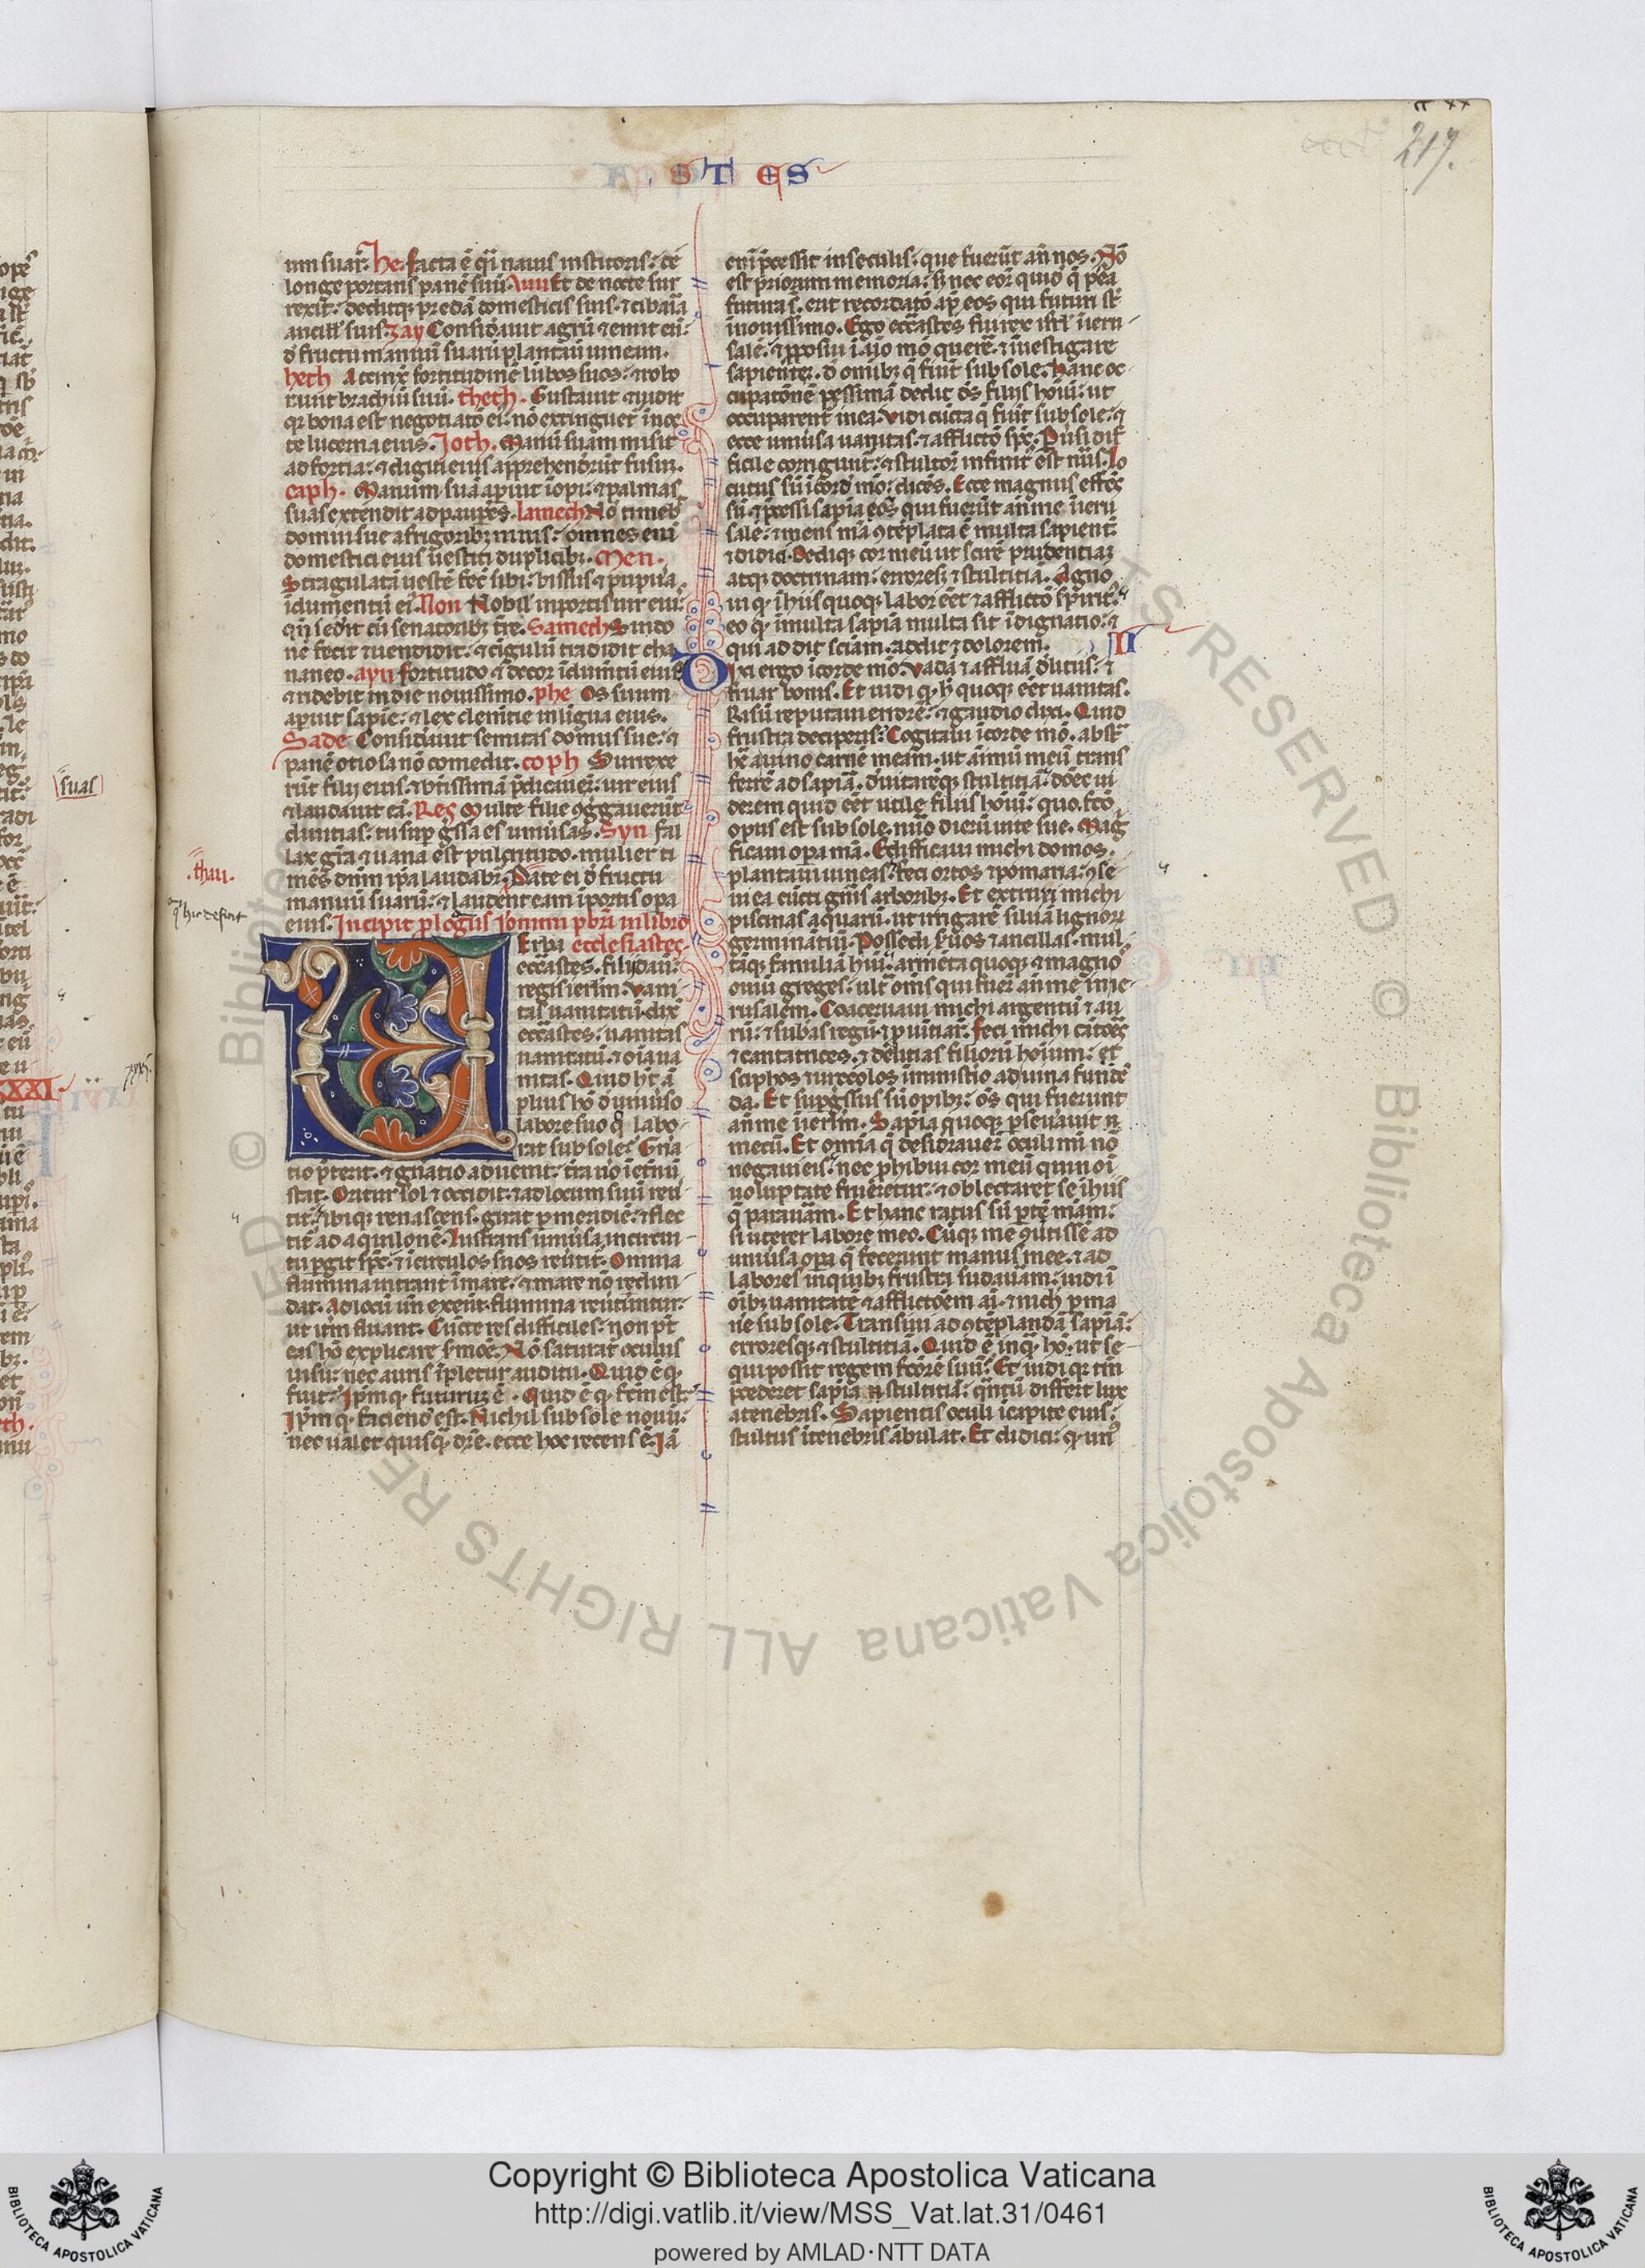 STES
217.
um suar̄. he. facta ē q̄i nauis institoris: de
longe portans panē suū. Vau Et de nocte sur
rexit: deditq; predā domesticis suis. ⁊ cibaria
ancill' suis. zay Considauit agrū ⁊ emit eū:
d' fructu manuū suarū plantauit uineam.
heth Accinx̄ fortitudine lūbos suos: ⁊ robo
rauit brachiū suū. theth. Gustauit ⁊ uidit
qr bona est negotiatō ei': nō extinguet' in noc
te lucerna eius. Joth. Manū suam misit
ad fortia: ⁊ digiti eius apprehenderūt fusuz.
caph. Manum suā aperuit īopi: ⁊ palmas
suas extendit ad paupes. lamech Nō timeb'
domui sue a frigorib; niuis: omnes eni
domestici eius uestiti duplicib;. Men.
Stragulatā uestē fec̄ sibi: bissus ⁊ purpura
īdumentū ei'. Non Nobil' in portis uir eius:
qn̄ sedit cū senatorib; tre. Samech Sindo
nē fecit ⁊ uendidit: ⁊ cigulū tradidit cha
naneo. ayn fortitudo ⁊ decor īdumtū eius
⁊ ridebit in die nouissimo. phe Os suum
aperuit sapīe: ⁊ lex clemētie in ligua eius.
Sade Considauit semitas domus sue: ⁊
panē otiosa nō comedit. coph Surrexe
rūt filij eius: ⁊ btissimā pdicauer̄: uir eius
⁊ laudauit eā. Res Multe filie 9ggauerūt
diuitias: tu supgssa es uniūsas. Syn fal
lax gr̄a ⁊ uana est pulcritudo. mulier ti
mēs dn̄m ip̄a laudabr̄. Date ei d' fructu
manuū suarū: ⁊ laudent eam ī portis opa
eius. Incipit plogus Jonimi pbri in libro
Erba ecclesiastes
eccastes. filij daui:
regis ierl̄m. Vani-
tas uanitatū dix̄
eccastes: uanitas
uanitatū. ⁊ oīa ua
nitas. Quid h̄t ā
plius hō d' uniūso
labore suo q̄ labo-
rat sub sole? Gn̄a
tio p̄terit. ⁊ gn̄atio aduenit: tr̄a ūo ī et̄nū
stat. Oritur sol ⁊ occidit. ⁊ ad locum suū reū
tit': ibiq; renascens. girat p meridiē: ⁊ flec
tit' ad aquilonē. Lustrans uniūsa in circui-
tu pgit spc: ⁊ ī circulos suos reūtit'. Omnia
flumina intrant ī mare: ⁊ mare nō redun-
dat. Ad locū un̄ exeūt flumina reūtuntur:
ut itm fluant. Cūcte res difficiles: non pt̄
eas hō explicare smōe. Nō saturat' oculus
uisu: nec auris īpletur auditu. Quid ē q
fuit? Ipm q futuruz ē. Quid ē q fc̄m est?
Ipm q faciend' est. Nichil sub sole nouū:
nec ualet quisq̄ dr̄e. ecce hoc recens ē: Iā
eni p̄cessit in seculis: que fuerūt an̄ nos. Nō
est priorum memoria: s; nec eor̄ quid' q̄ pea
futura s̄. erit recordatō ap̄ eos qui futuri st̄
ī nouissimo. Ego eccastes fui rex isrl' ī ieru-
salē: ⁊ pposui ī aīo mō querē. ⁊ īuestigare
sapienter. d' omib; q̄ fiūt sub sole. Hanc oc
cupatōnē pessimā dedit ds̄ filijs hoīu: ut
occuparent' in ea. Vidi cūcta q̄ fiūt sub sole: ⁊
ecce uniūsa uanitas. ⁊ afflictō spc. Pūsi dif
ficile corrigunt': ⁊ stultor̄ infinit' est nūs. Lo
cutus sū ī cord' mō: dicēs. Ecce magnus effec̄
sū ⁊ p̄cessi sapīa eos qui fuerūt an̄ me ī ieru
salē: ⁊ mens mā 9tēplata ē multa sapient':
⁊ didici. Dediq; cor meū ut scirē prudentiaz
atq; doctrinam: erroresq; ⁊ stultitiā. Agno
ui q ī hiis quoq; labor eēt ⁊ afflictō spirit':
eo q ī multa sapīa multa sit īdignatio: ⁊
qui addit sciam. addit ⁊ dolorem. II
Dixi ergo ī corde mō. Vadā ⁊ affluā d'litiis: ⁊
fruar bonis. Et uidi q h̄ quoq; eēt uanitas.
Risū reputaui errorē: ⁊ gaudio dixi. Quid
frustra deciperis? Cogitaui ī corde mō. abst
hē a uino carnē meam. ut aīmū meū trans
ferrē ad sapīā. d'uitarēq; stultitiā: donec ui
derem quid eēt utile filiis hoīu: quo. fcō
opus est sub sole. nūo dierū uite sue. Mag
ficaui opa mā. Edifficaui michi domos.
plantaui uineas: feci ortos ⁊ pomaria: 9se
ui ea cūcti gn̄is arborib;. Et extruxi michi
piscinas aquarū. ut irrigarē siluā lignorū
germinātiū. Possedi suos ⁊ ancillas. mul
tāq; familiā hūi: armēta quoq; ⁊ magno
ouiū greges: ult' om̄s qui fuer̄ an̄ me ī ie-
rusalem. Coaceruaui michi argentū ⁊ au
rū: ⁊ subas regū. ⁊ puītiar̄. feci michi cātoes
⁊ cantatrices. ⁊ delitias filiorū hoīum: et
sciphos urceolos ī ministio ad uina funde
da. Et supgssus sū opib;: os̄ qui fuerunt
an̄ me ī ierl̄m. Sapīa quoq; pseuauit
mecū. Et omīa q̄ desiderauer̄ oculi mī nō
negaui eis: nec phibui cor meū quin oī
uoluptate frueretur: ⁊ oblectaret se ī hiis
q̄ parauam. Et hanc ratus sū ptē mam:
si uterer labore meo. Cūq; me 9ūtissē ad
uniūsa opa q̄ fecerunt manus mee. ⁊ ad
labores in quib; frustra sudauam: uidi ī
oīb; uanitatē ⁊ afflictōem aī. ⁊ nich' pma
nē sub sole. Transiui ad 9tēplandā sapīā:
erroresq; ⁊ stultitiā. Quid ē inq̄. hō: ut se-
qui possit regem fc̄orē suū? Et uidi qr tm̄
p̄cederet sapīa stultitiā: q̄ntū differt lux
a tenebris. Sapientis oculi ī capite eius:
stultus ī tenebris ābulat. Et didici: q un'
suas
thau.
hic deficit
XXXI
Copyright © Biblioteca Apostolica Vaticana
http://digi.vatlib.it/view/MSS_Vat.lat.31/0461
powered by AMLAD·NTT DATA
BIBLIOTECA APOSTOLICA VATICANA
BIBLIOTECA APOSTOLICA VATICANA
© Biblioteca Apostolica Vaticana ALL RIGHTS RESERVED